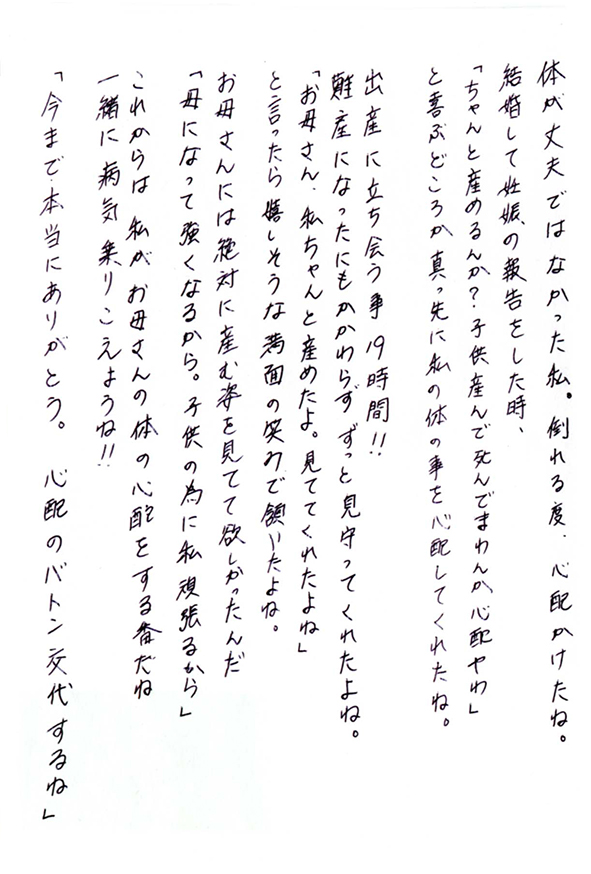 体が丈夫ではなかった私。倒れる度、心配かけたね。
結婚して妊娠の報告をした時、
「ちゃんと産めるんか?子供産んで死んでまわんか心配やわ」
と喜ぶどころか真っ先に私の体の事を心配してくれたね。
出産に立ち会う事19時間!!
難産になったにもかかわらずずっと見守ってくれたよね。
「お母さん、私ちゃんと産めたよ。見ててくれたよね」
と言ったら嬉しそうな満面の笑みで頷いたよね。
お母さんには絶対に産む姿を見てて欲しかったんだ
「母になって強くなるから。子供の為に私頑張るから」
これからは私がお母さんの体の心配をする番だね
一緒に病気乗りこえようね!!
「今まで本当にありがとう。心配のバトン交代するね」